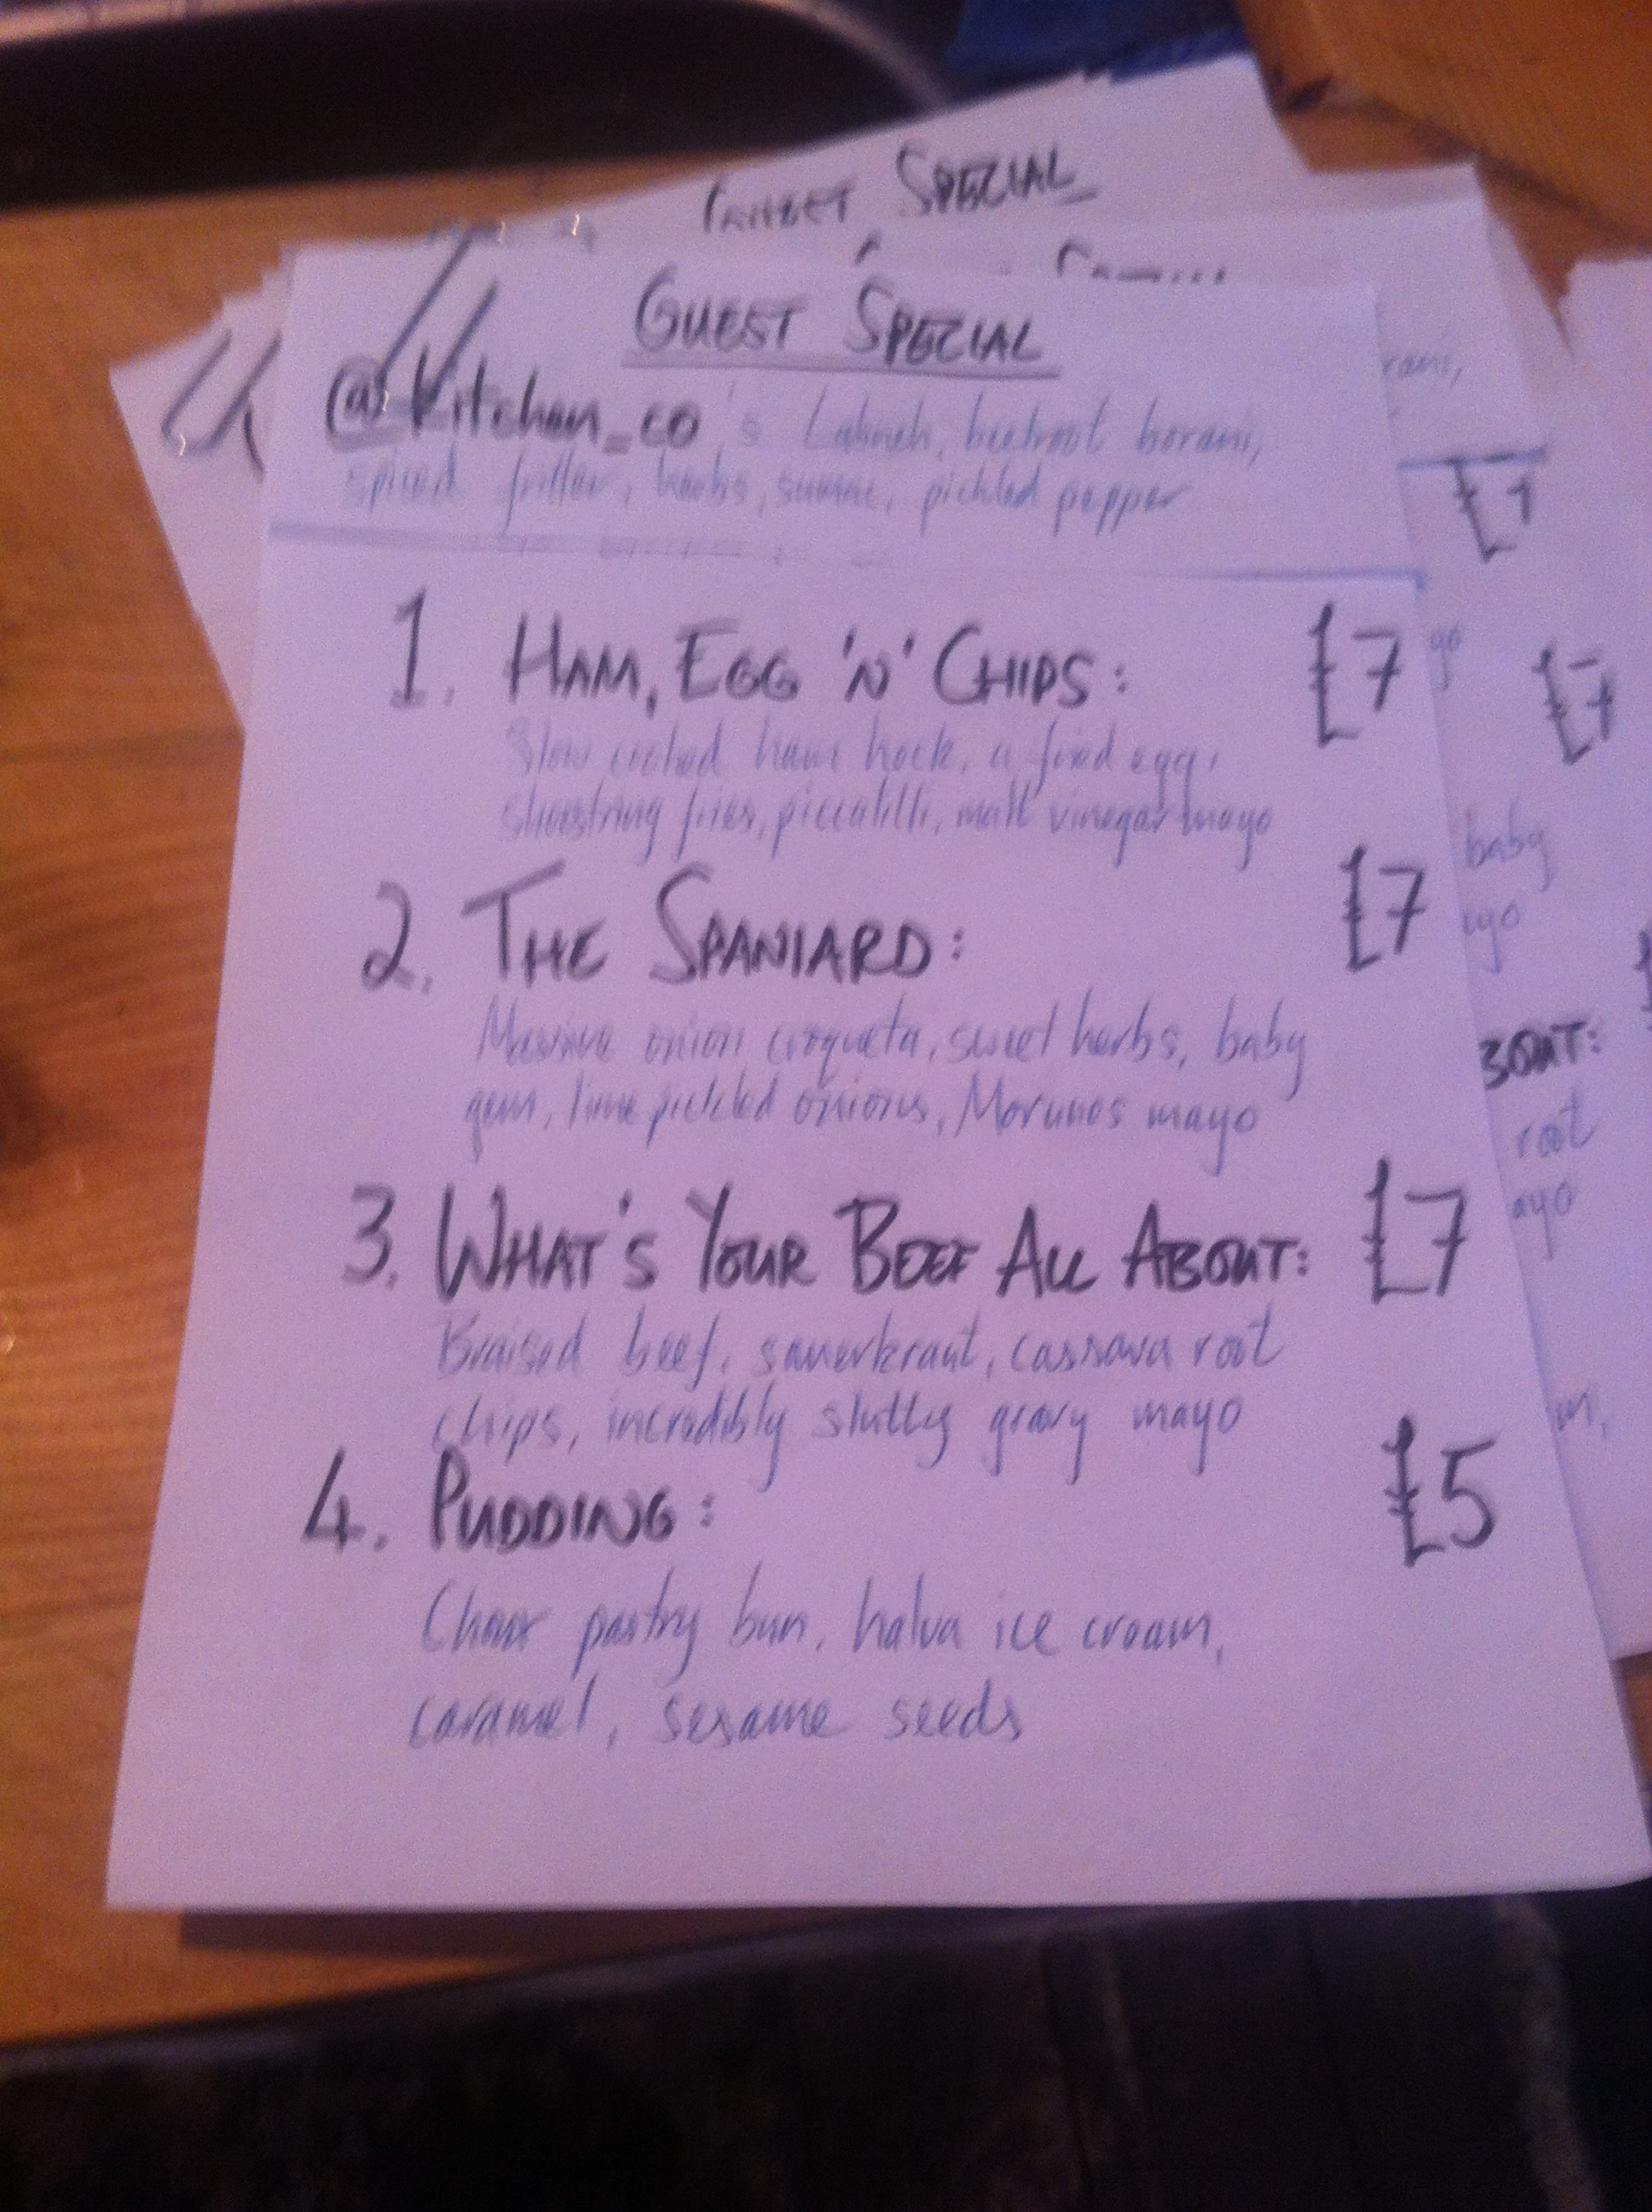 GUEST SPECIAL
@Kitchen_co's Labneh, beetroot borani,
spiced fritter, herbs, sumac, pickled pepper
1. HAM, EGG 'N' CHIPS: £7
Slow cooked ham hock, a fried egg,
shoestring fries, piccalilli, malt vinegar mayo
2. THE SPANIARD: £7
Massive onion croqueta, sweet herbs, baby
gem, lime pickled onions, Morunos mayo
3. WHAT'S YOUR BEEF ALL ABOUT: £7
Braised beef, sauerkraut, cassava root
chips, incredibly slutty gravy mayo
4. PUDDING: £5
Choux pastry bun, halva ice cream,
caramel, sesame seeds
SPECIAL
£7
baby
root
ayo